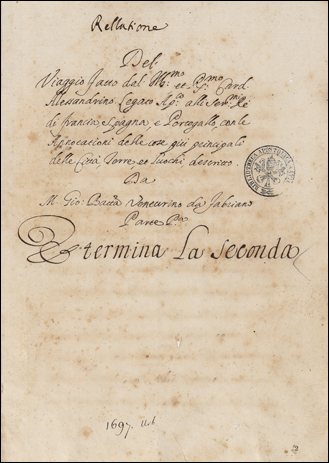 Rellatione
Del
Viaggio fatto dal Ill:mo et R:mo Card
Alessandrino Legato Ap:co alli Ser:mi Re
di francia Spagna, e Portogallo, con le
Annotationi delle cose più principali
delle Città, Terre et Luochi, descritto
Da
M Gio: Batta Venturino da Fabriano
Parte P.a
E termina La Seconda
1697. Urb